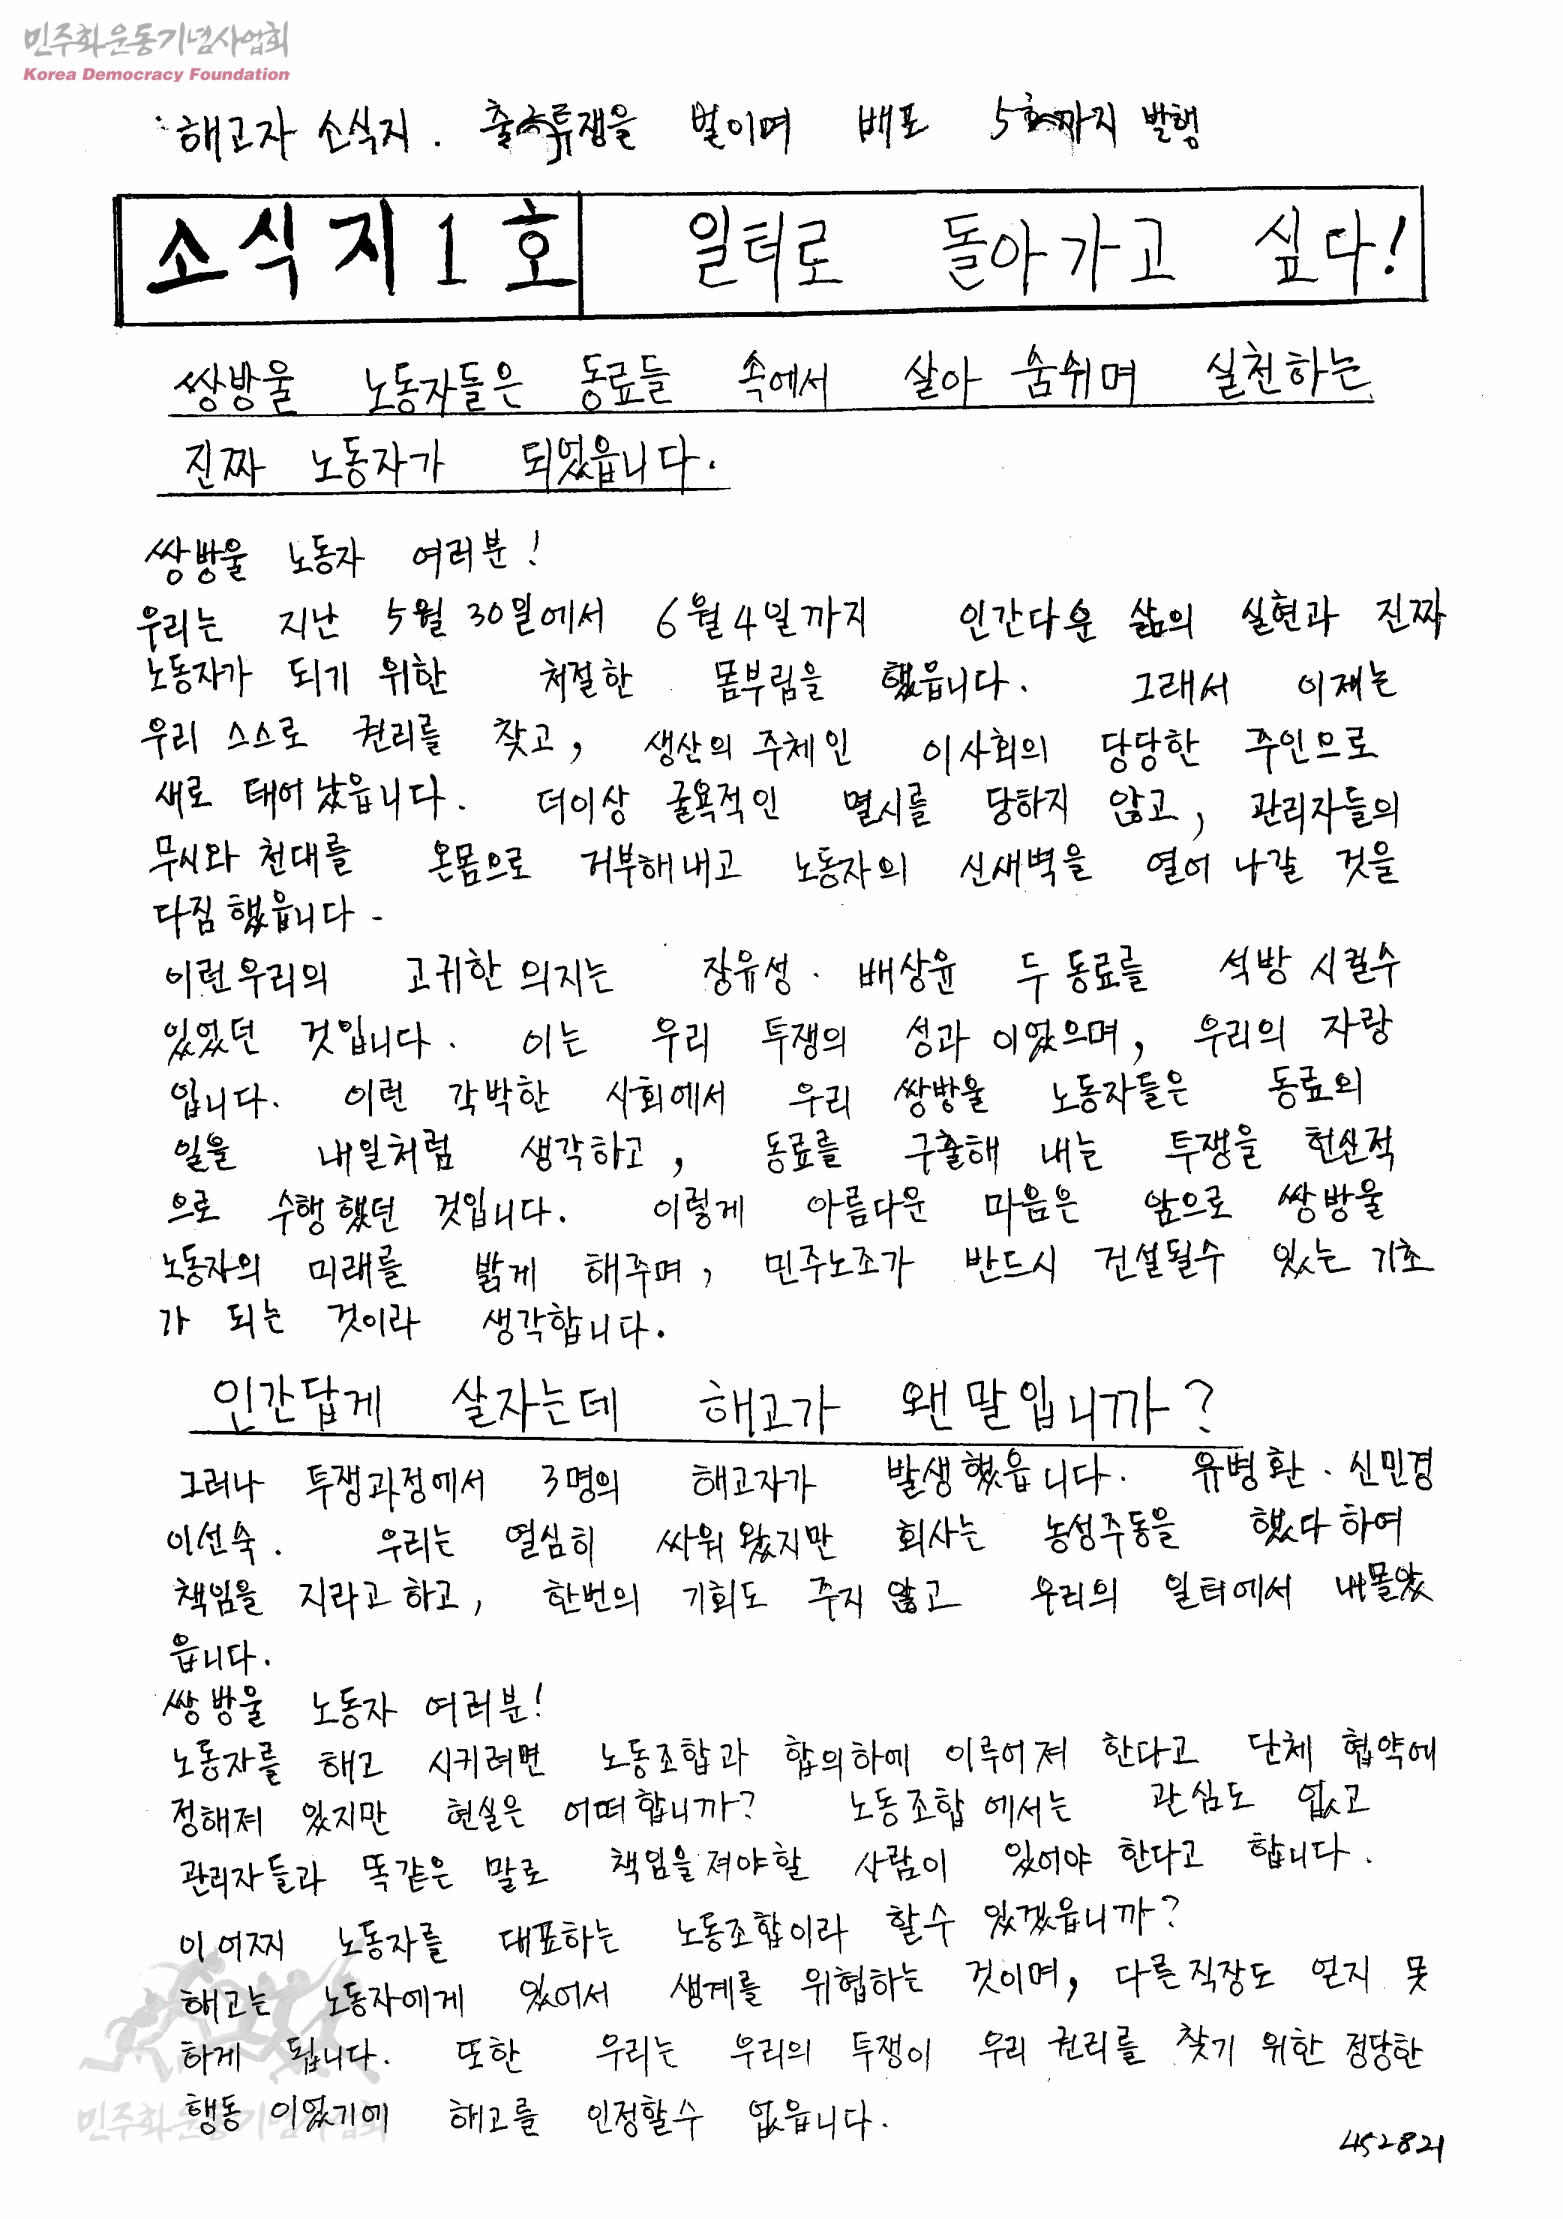 민주화운동기념사업회
Korea Democracy Foundation
해고자 소식지. 벌이며 배포 5호까지 발행
소식지 1호 일터로 돌아가고 싶다!
쌍방울 노동자들은 동료들 속에서 살아 숨쉬며 실천하는
진짜 노동자가 되었읍니다.
쌍방울 노동자 여러분!
우리는 지난 5월 30일에서 6월 4일까지 인간다운 삶의 실현과 진짜
노동자가 되기 위한 처절한 몸부림을 했읍니다. 그래서 이제는
우리 스스로 권리를 찾고, 생산의 주체인 이사회의 당당한 주인으로
새로 태어났읍니다. 더이상 굴욕적인 멸시를 당하지 않고, 관리자들의
무시와 천대를 온몸으로 거부해내고 노동자의 신새벽을 열어 나갈 것을
다짐했읍니다.
이런우리의 고귀한 의지는 장유성. 배상윤 두 동료를 석방 시킬수
있었던 것입니다. 이는 우리 투쟁의 성과 이었으며, 우리의 자랑
입니다. 이런 각박한 사회에서 우리 쌍방울 노동자들은 동료의
일을 내일처럼 생각하고, 동료를 구출해 내는 투쟁을 헌신적
으로 수행했던 것입니다. 이렇게 아름다운 마음은 앞으로 쌍방울
노동자의 미래를 밝게 해주며, 민주노조가 반드시 건설될수 있는 기초
가 되는 것이라 생각합니다.
인간답게 살자는데 해고가 왠말입니까?
그러나 투쟁과정에서 3명의 해고자가 발생했읍니다. 유병환. 신민경
이선숙. 우리는 열심히 싸워왔지만 회사는 농성주동을 했다하여
책임을 지라고하고, 한번의 기회도 주지 않고 우리의 일터에서 내몰았
읍니다.
쌍방울 노동자 여러분!
노동자를 해고 시키려면 노동조합과 합의하에 이루어져 한다고 단체 협약에
정해져 있지만 현실은 어떠합니까? 노동조합에서는 관심도 없고
관리자들과 똑같은 말로 책임을져야할 사람이 있어야 한다고 합니다.
이어찌 노동자를 대표하는 노동조합이라 할수 있겠읍니까?
해고는 노동자에게 있어서 생계를 위협하는 것이며, 다른직장도 얻지 못
하게 됩니다. 또한 우리는 우리의 투쟁이 우리 권리를 찾기 위한 정당한
행동 이었기에 해고를 인정할수 없읍니다.
민주화운동기념사업회
452821